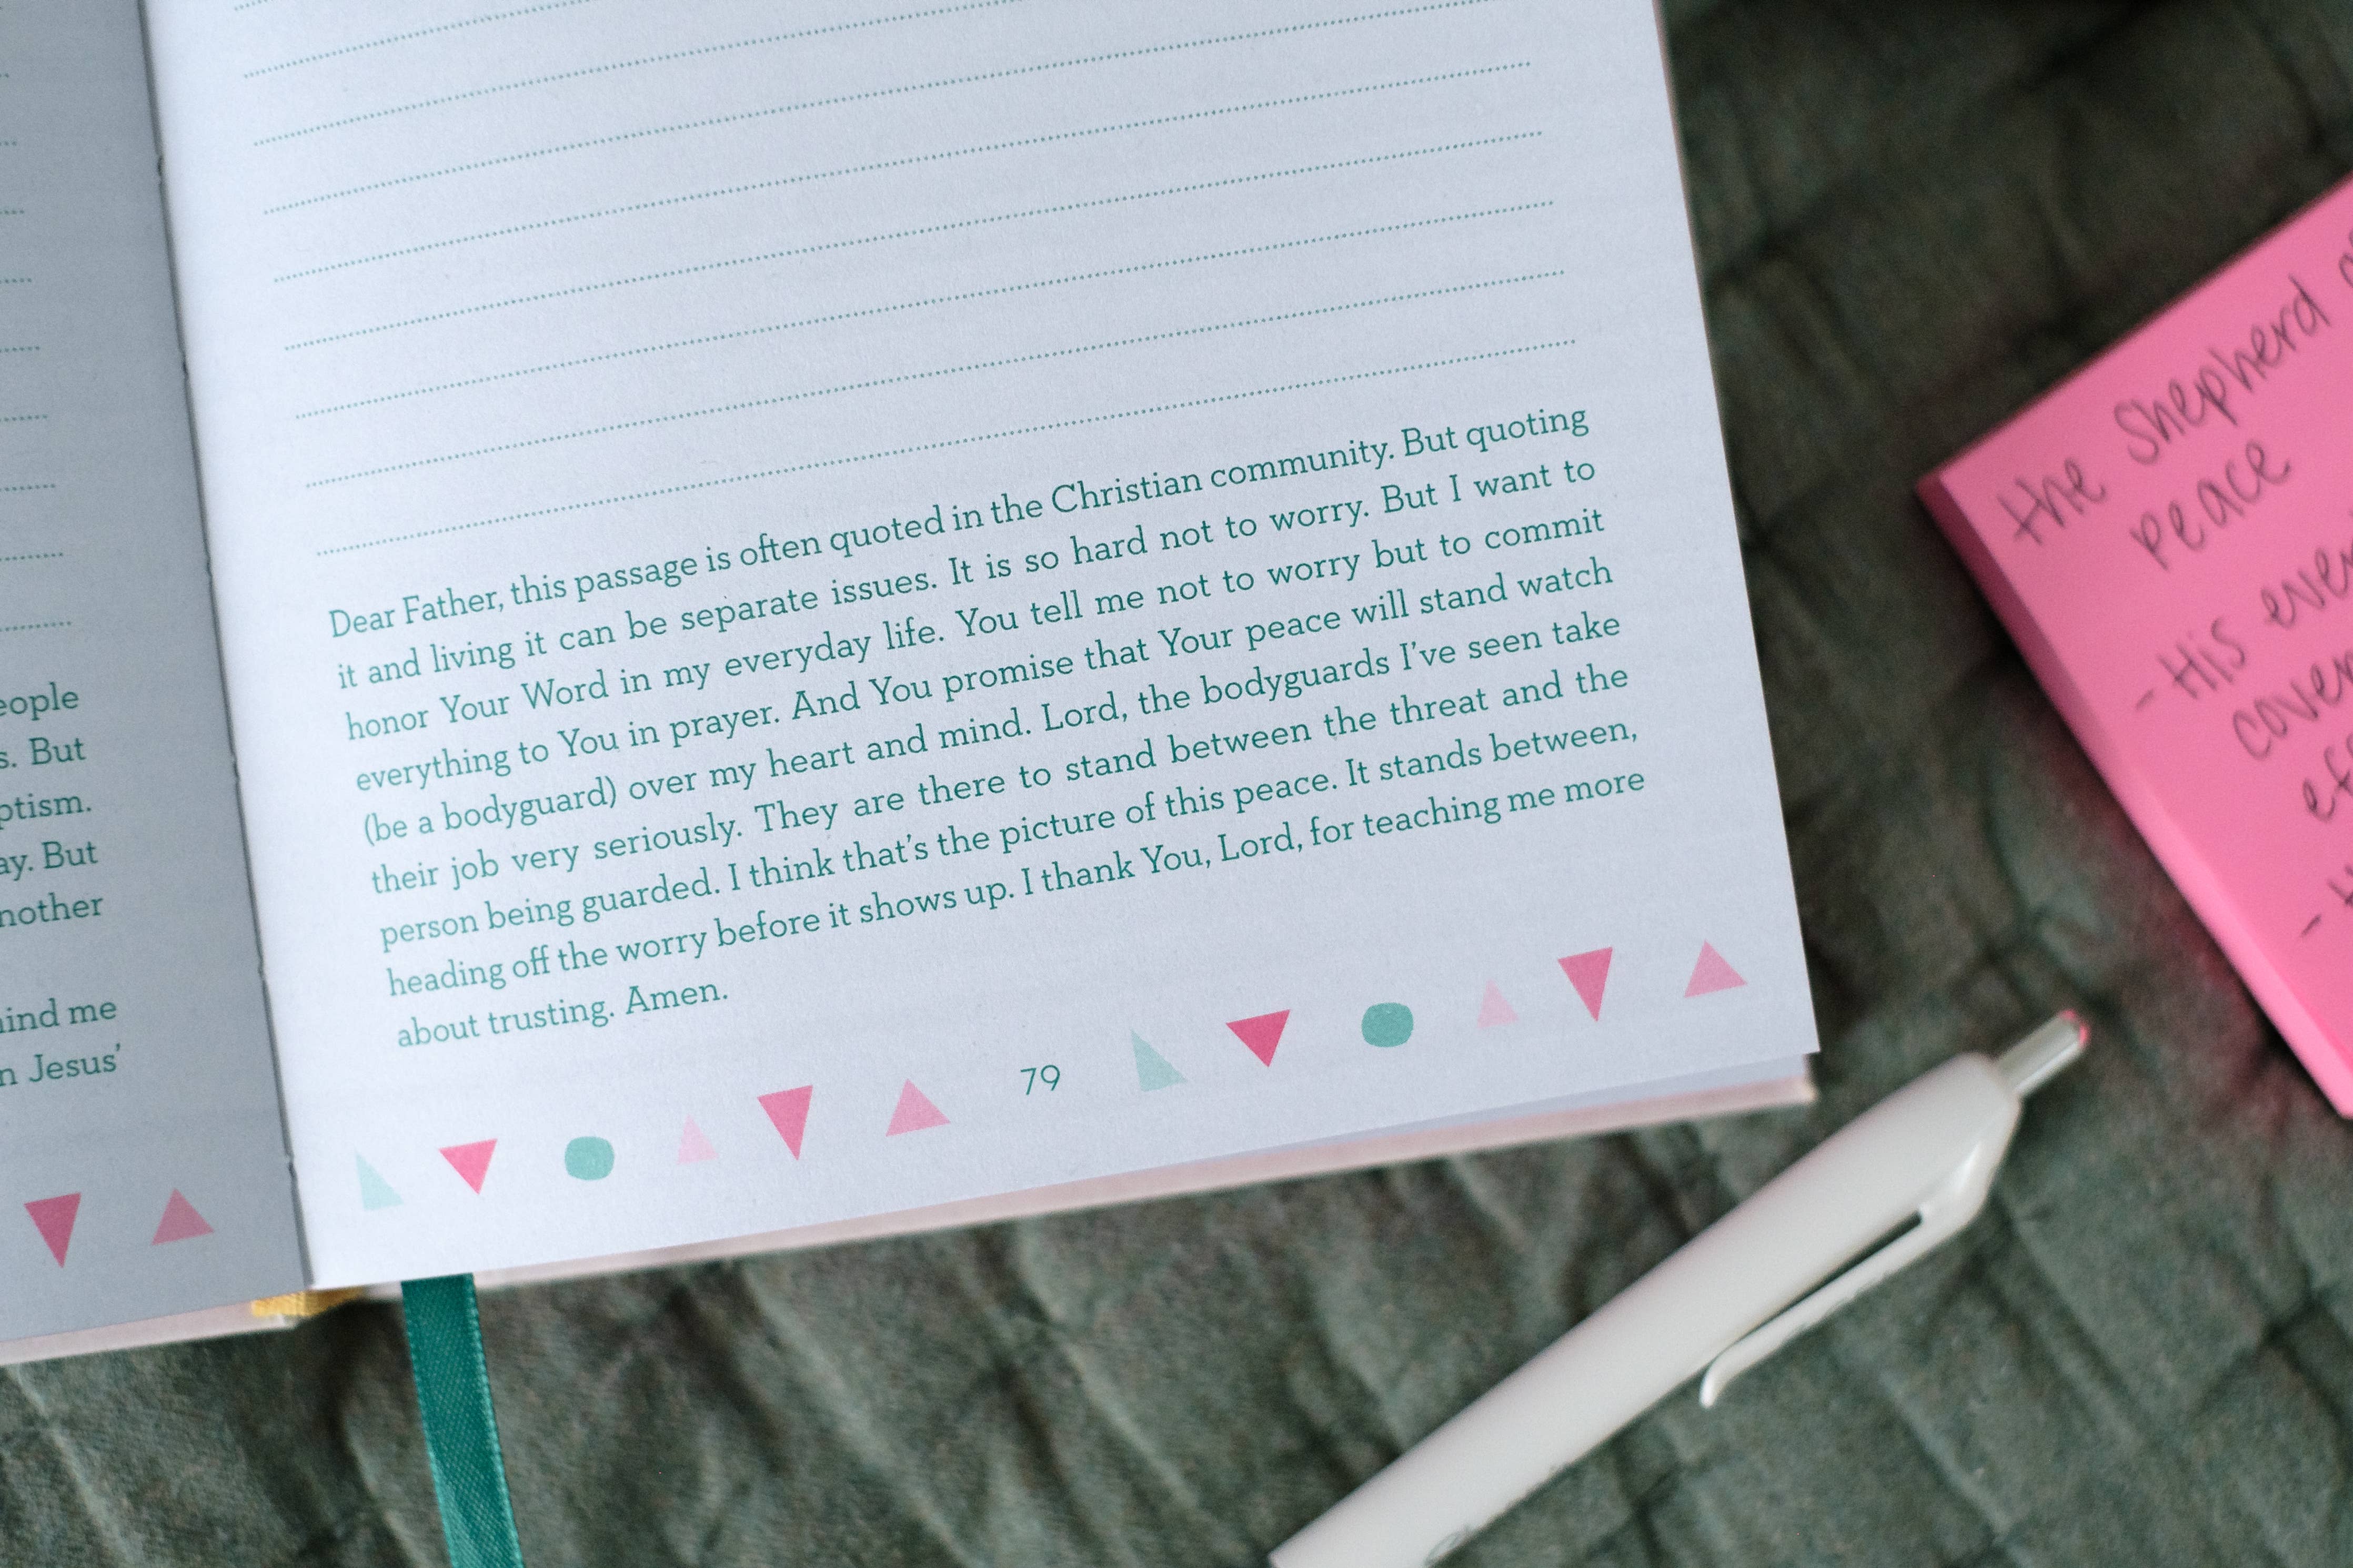 People
s. But
ay. But
me
Jesus'
Dear Father, this passage is often quoted in the Christian community. But quoting
it and living it can be separate issues. It is so hard not to worry. But I want to
honor Your Word in my everyday life. You tell me not to worry but to commit
everything to You in prayer. And You promise that Your peace will stand watch
(be a bodyguard) over my heart and mind. Lord, the bodyguards I've seen take
their job very seriously. They are there to stand between the threat and the
person being guarded. I think that's the picture of this peace. It stands between,
heading off the worry before it shows up. I thank You, Lord, for teaching me more
about trusting. Amen.
79
the Shepherd
peace
- His